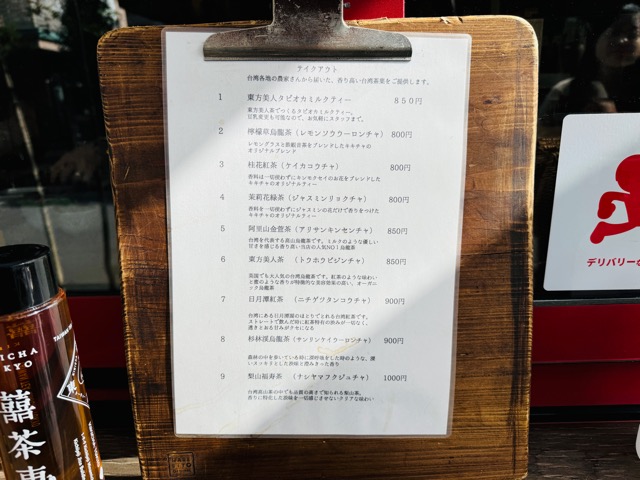 テイクアウト
台湾各地の農家さんから届いた、香り高い台湾茶葉をご提供します。
1 東方美人タピオカミルクティー 850円
東方美人茶でつくるタピオカミルクティー。
豆乳変更も可能なので、お気軽にスタッフまで。
2 檸檬草烏龍茶（レモンソウラーロンチャ）800円
レモングラスと鉄観音茶をブレンドしたキキチャの
オリジナルブレンド
3 桂花紅茶（ケイカコウチャ） 800円
香料は一切使わずにキンモクセイのお花をブレンドした
キキチャのオリジナルティー
4 茉莉花緑茶（ジャスミンリョクチャ） 800円
香料を一切使わずにジャスミンの花だけで香りをつけた
キキチャのオリジナルティー
5 阿里山金萱茶（アリサンキンセンチャ） 850円
台湾を代表する高山烏龍茶です。ミルクのような優しい
甘さを感じる香り高い当店の人気NO1烏龍茶
6 東方美人茶 （トウホウビジンチャ） 850円
英国でも大人気の台湾烏龍茶です。紅茶のような味わい
と蜜のような香りが特徴的な美容効果の高い、オーガニ
ック烏龍茶
7 日月潭紅茶 （ニチゲツタンコウチャ） 900円
台湾にある日月潭湖のほとりでとれる台湾紅茶です。
ストレートで飲んだ時に紅茶特有の渋みが一切なく、
透きとおる甘みがクセになる
8 杉林渓烏龍茶（サンリンケイウーロンチャ） 900円
森林の中を歩いている時に深呼吸をした時のような、深
いスッキリとした渋味と澄みきった香り
9 梨山福寿茶 （ナシヤマフクジュチャ） 1000円
台湾高山茶の中でも品質の高さで知られる梨山茶。
香りに特化した渋味を一切感じさせないクリアな味わい
デリバリーの
ICHA
KYO
囍茶東